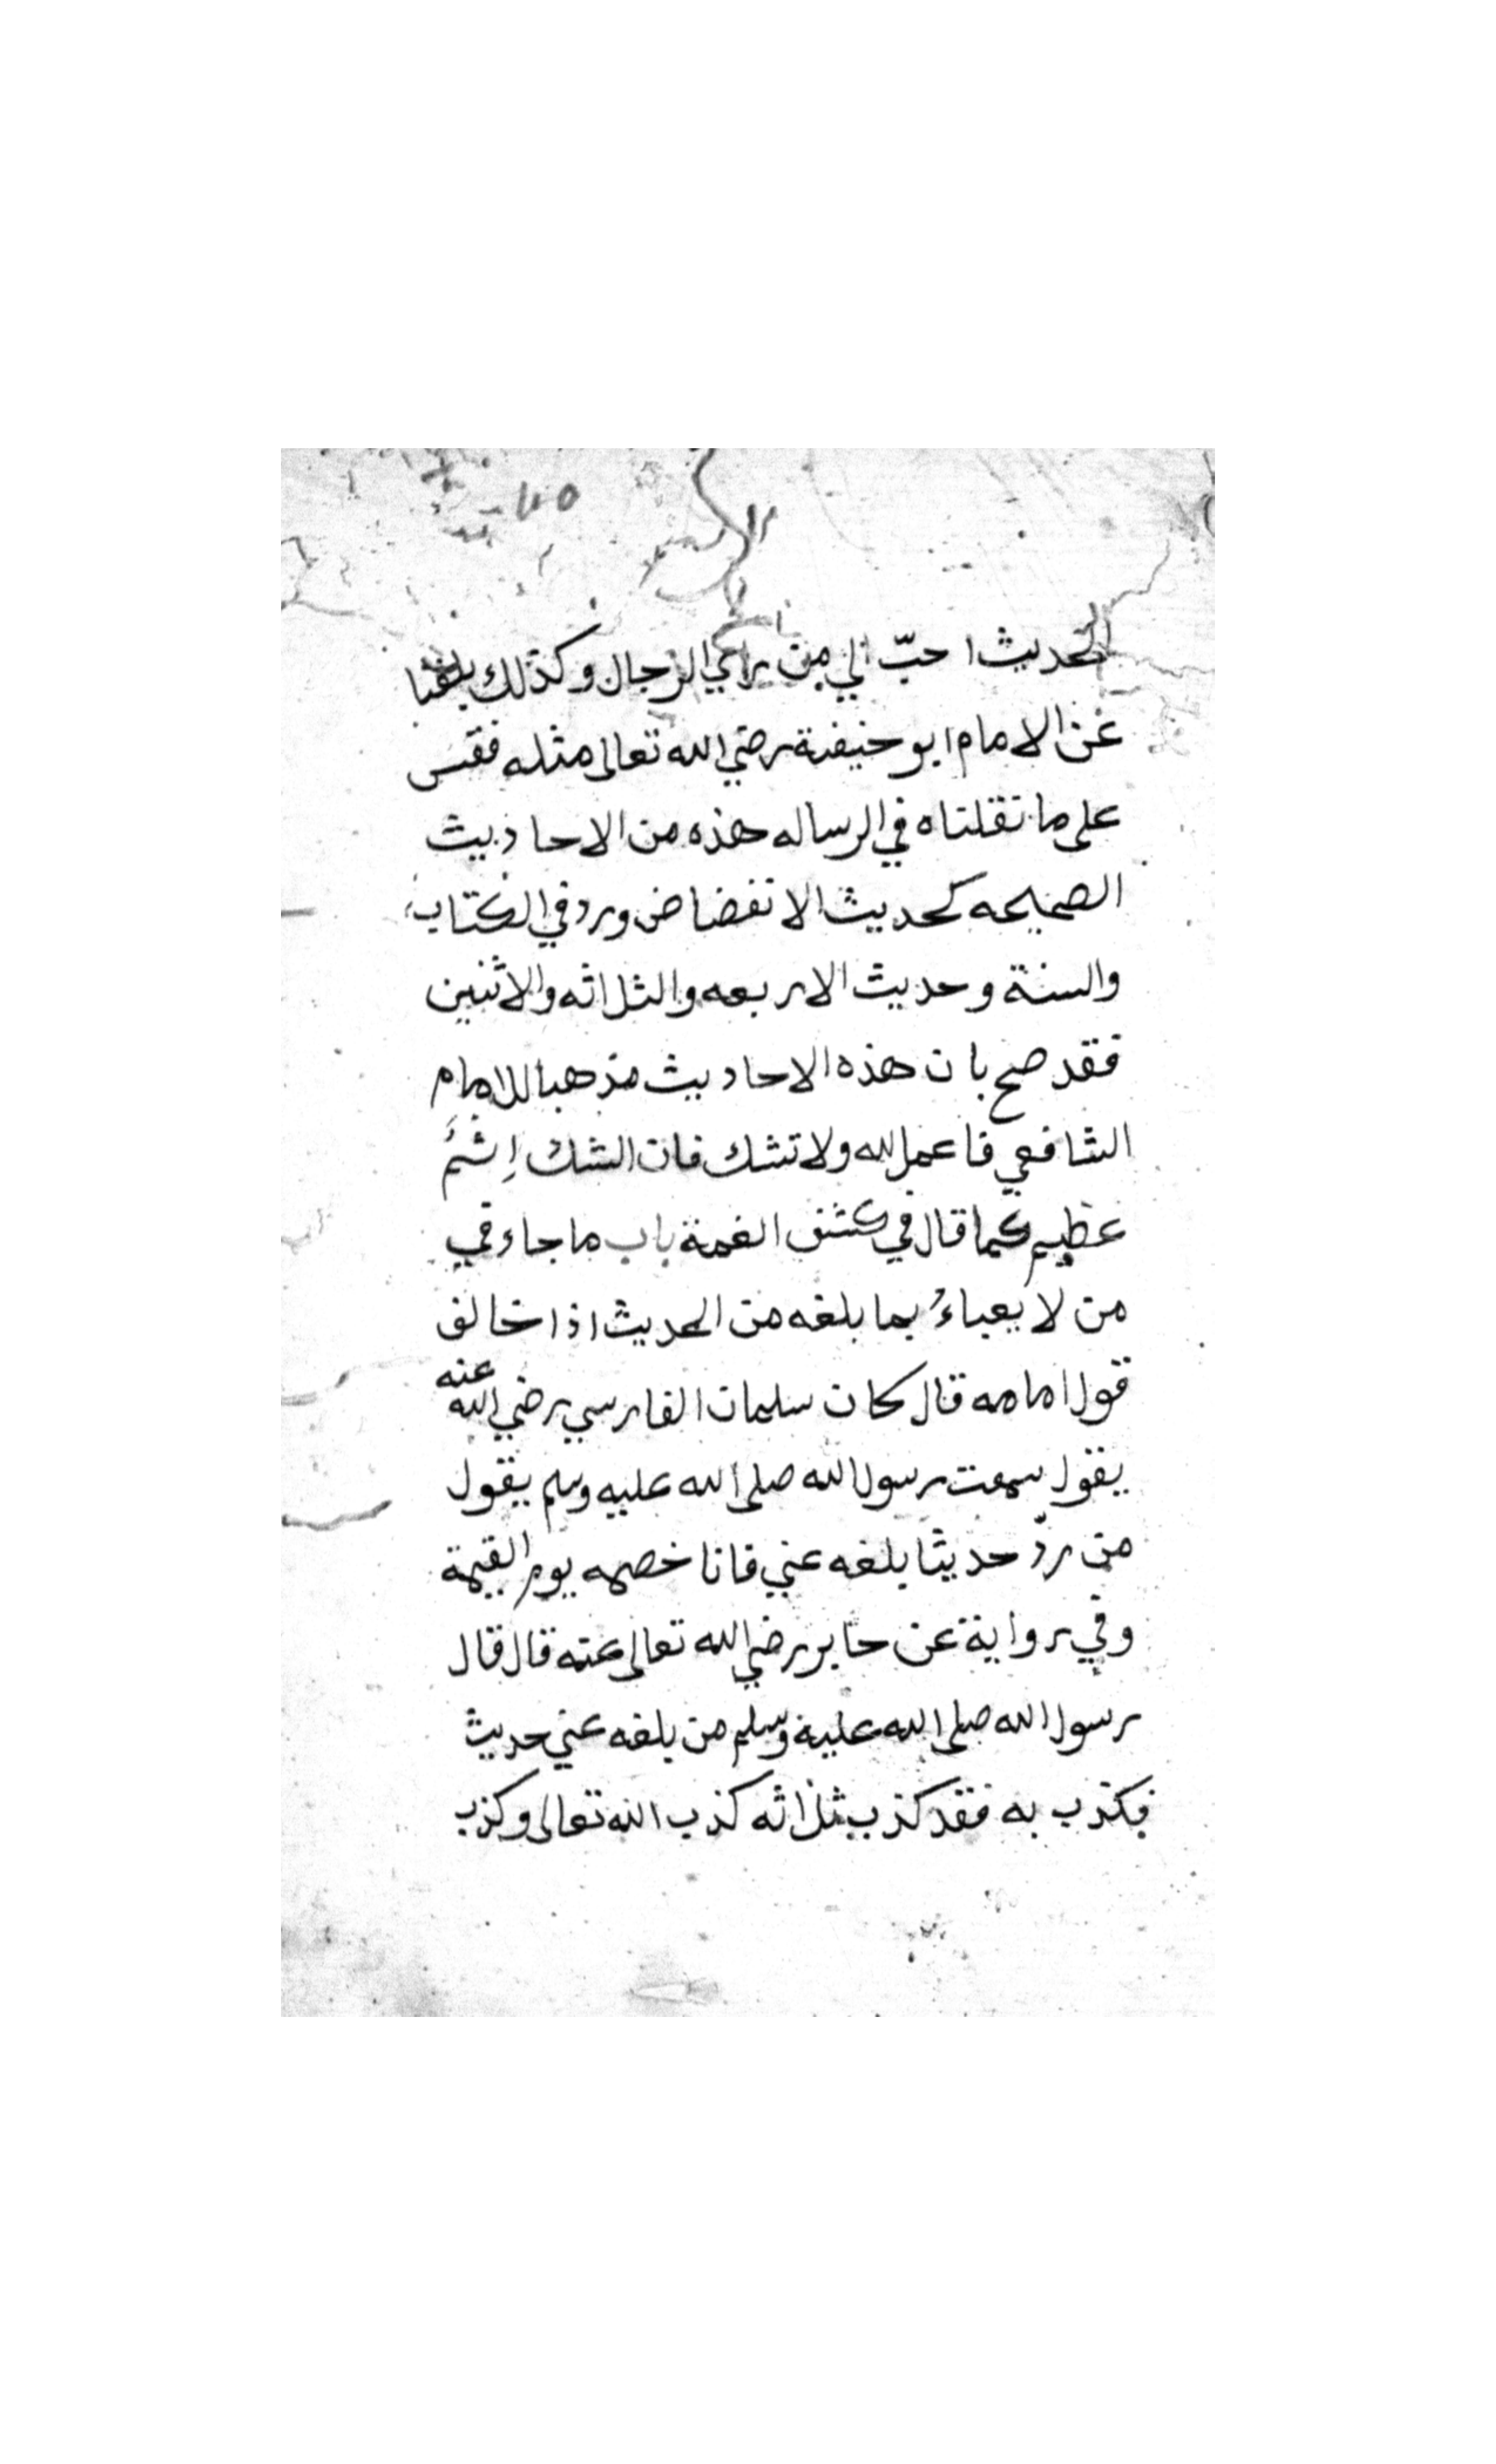 الحديث احبّ الي من راي الرجال وكذلك بلغنا
عن الامام ابو حنيفة رضي الله تعالى مثله فقس
على ما نقلناه في الرساله هذه من الاحاديث
الصحيحه كحديث الانفضاض ورد في الكتاب
والسنة وحديث الاربعه والثلاثه والاثنين
فقد صح بان هذه الاحاديث مذهبا للامام
الشافعي فاعمل لله ولا تشك فان الشك إثم
عظيم كما قال في كشف الغمة باب ما جاء في
من لا يعباءُ بما بلغه من الحديث اذا خالف
قول امامه قال كان سلمان الفارسي رضي الله عنه
يقول سمعت رسول الله صلى الله عليه وسلم يقول
من ردّ حديثا بلغه عني فانا خصمه يوم القيمة
وفي رواية عن جابر رضي الله تعالى عنه قال قال
رسول الله صلى الله عليه وسلم من بلغه عني حديث
فكذب به فقد كذب ثلاثه كذب الله تعالى وكذب